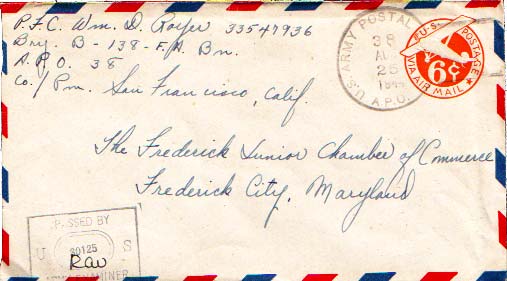 P.F.C. Wm. D. Roifer 33547936
Bry. B - 138 - F.A. Bn.
A.P.O. 38
co./Pm. San Francisco, Calif.
U.S. ARMY POSTAL
38
AU
25
194
A.P.O.
U.S. POSTAGE
6¢
VIA AIR MAIL
The Frederick Junior Chamber of Commerce
Frederick City, Maryland
PASSED BY
U S
30125
ARMY EXAMINER